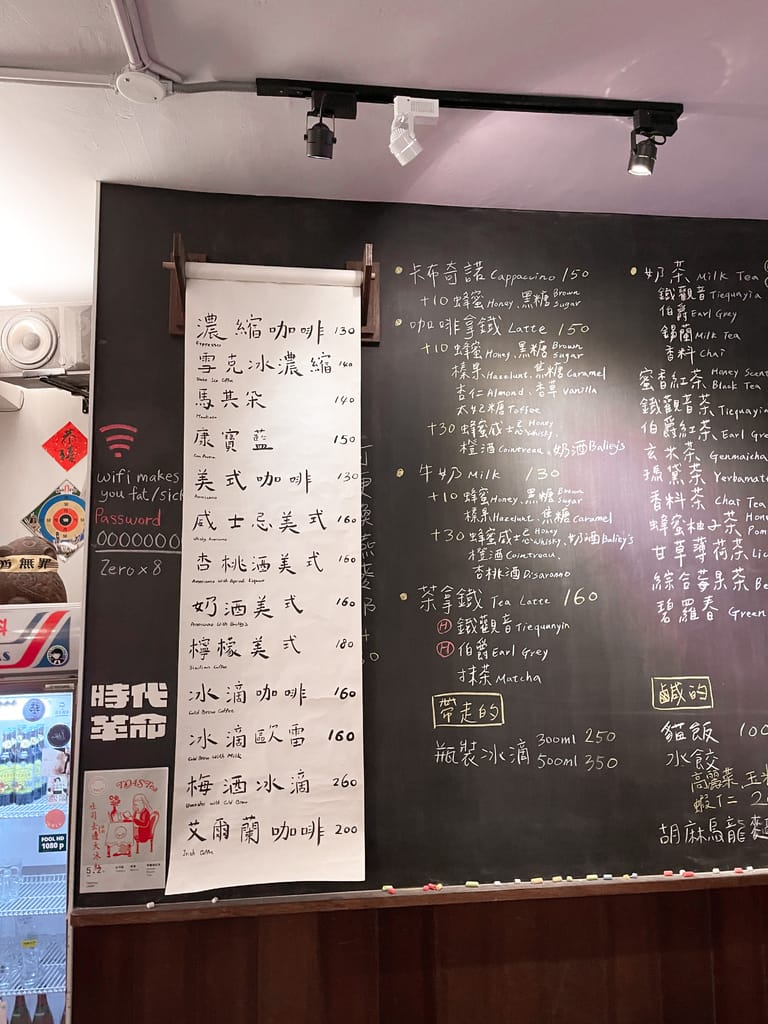 濃縮咖啡 130
Espresso
雪克冰濃縮 140
Shake Ice Coffee
馬其朵 140
Macchiato
康寶藍 150
Con Panna
美式咖啡 130
Americano
威士忌美式 160
Whisky Americano
杏桃酒美式 160
Americano with Apricot Liqueur
奶酒美式 160
Americano with Bailey's
檸檬美式 180
Sicilian Coffee
冰滴咖啡 160
Cold Brew Coffee
冰滴歐蕾 160
Cold Brew with Milk
梅酒冰滴 260
Umeshu with Cold Brew
艾爾蘭咖啡 200
Irish Coffee
卡布奇諾 Cappuccino 150
+10 蜂蜜 Honey、黑糖 Brown Sugar
咖啡拿鐵 Latte 150
+10 蜂蜜 Honey、黑糖 Brown Sugar
榛果 Hazelunt、焦糖 Caramel
杏仁 Almond、香草 Vanilla
太妃糖 Toffee
+30 蜂蜜威士忌 Honey Whisky、
橙酒 Cointreau、奶酒 Baliey's
牛奶 Milk 130
+10 蜂蜜 Honey、黑糖 Brown Sugar
榛果 Hazelunt、焦糖 Caramel
+30 蜂蜜威士忌 Honey Whisky、奶酒 Baliey's
橙酒 Cointreau、
杏桃酒 Disaronno
茶拿鐵 Tea Latte 160
H 鐵觀音 Tiequanyin
H 伯爵 Earl Grey
抹茶 Matcha
帶走的
瓶裝冰滴 300ml 250
500ml 350
奶茶 Milk Tea
鐵觀音 Tiequanyin
伯爵 Earl Grey
錫蘭 Milk Tea
香料 Chai
蜜香紅茶 Honey Scent
Black Tea
鐵觀音茶 Tiequanyin
伯爵紅茶 Earl Gre
玄米茶 Genmaicha
瑪黛茶 Yerbamate
香料茶 Chai Tea
蜂蜜柚子茶 Hone
Pom
甘草薄荷茶 Lic
綜合莓果茶 Be
碧羅春 Green
鹹的
貓飯 100
水餃
高麗菜、玉米
蝦仁
胡麻烏龍麵
wifi makes
you fat/sick
Password
00000000
Zero x 8
時代
革命
恭禧
無罪
TOAST
吐司去遠大冰釉
5.2
FOOL HD
1080 p